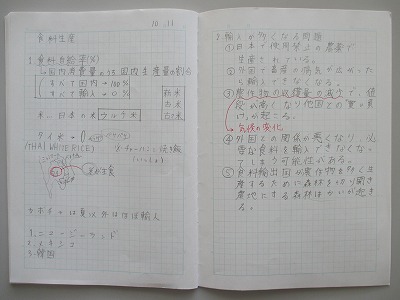 10.11
食料生産
食料自給率(%)
国内消費量のうち国内生産量の割合
すべて国内→100%
すべて輸入→0%
新米
古米
古古米
米、日本の米
タイ米→
(THAI WHITE RICE)
かぼちゃは夏以外はほぼ輸入
1.ニュージーランド
2.メキシコ
3.韓国
輸入が多くなる問題
①日本で使用禁止の農薬で
生産されている。
②外国で家畜の病気が広がった
ら輸入できなくなる。
③農作物の収穫量の減少で、値
段が高くなり他国との買い負
け」が起こる。
気候の変化
④外国との関係が悪くなり、必
要な食料を輸入できなくなっ
てしまう可能性がある。
⑤食料輸出国が農作物を多く生
産するために森林を切り開き
農地にする森林はかいが起き
る。